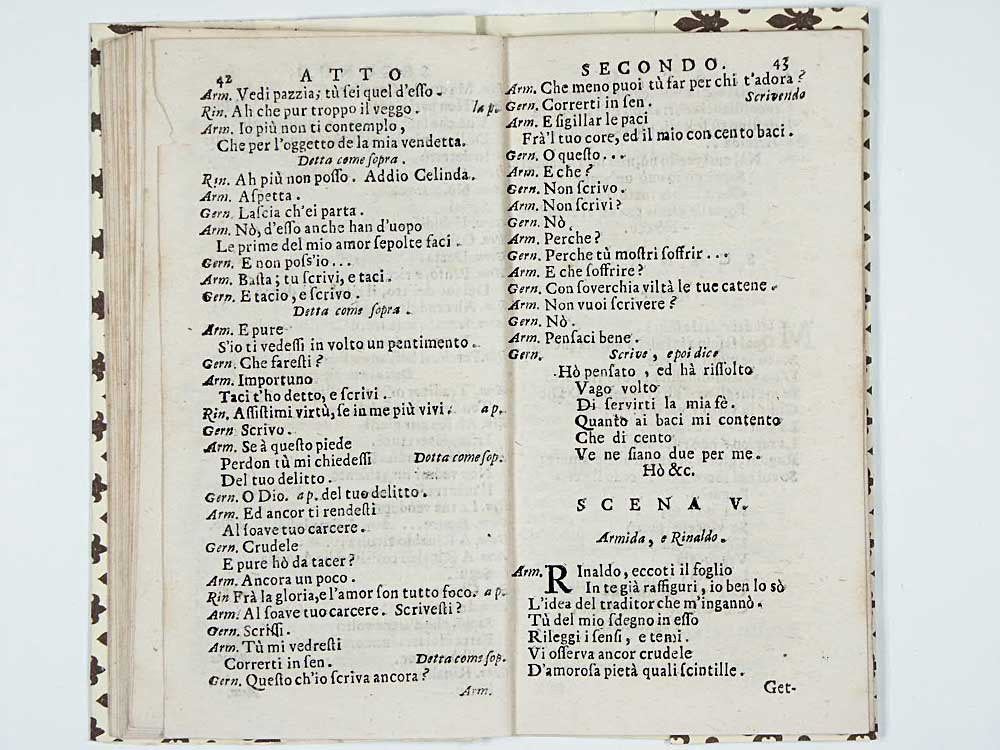 42 ATTO
Arm. Vedi pazzia; tù sei quel d'esso.
Rin. Ah che pur troppo il veggo. la p.
Arm. Io più non ti contemplo,
Che per l'oggetto de la mia vendetta.
Detta come sopra.
Rin. Ah più non posso. Addio Celinda.
Arm. Aspetta.
Gern. Lascia ch'ei parta.
Arm. Nò, d'esso anche han d'uopo
Le prime del mio amor sepolte faci.
Gern. E non poss'io...
Arm. Basta; tu scrivi, e taci.
Gern. E tacio, e scrivo.
Detta come sopra.
Arm. E pure
S'io ti vedessi in volto un pentimento.
Gern. Che faresti?
Arm. Importuno
Taci t'ho detto, e scrivi.
Rin. Assistimi virtù, se in me più vivi. a p.
Gern. Scrivo.
Arm. Se à questo piede
Perdon tù mi chiedessi Dotta come sop.
Del tuo delitto.
Gern. O Dio. a p. del tuo delitto.
Arm. Ed ancor ti rendesti
Al soave tuo carcere.
Gern. Crudele
E pure hò da tacer?
Arm. Ancora un poco.
Rin Frà la gloria, e l'amor son tutto foco. a p.
Arm. Al soave tuo carcere. Scrivesti?
Gern. Scrissi.
Arm. Tù mi vedresti
Correrti in sen. Dotta come sop.
Gern. Questo ch'io scriva ancora?
Arm.
SECONDO. 43
Arm. Che meno puoi tù far per chi t'adora?
Gern. Correrti in sen. Scrivendo
Arm. E sigillar le paci
Frà'l tuo core, ed il mio con cento baci.
Gern. O questo...
Arm. E che?
Gern. Non scrivo.
Arm. Non scrivi?
Gern. Nò.
Arm. Perche?
Gern. Perche tù mostri soffrir...
Arm. E che soffrire?
Gern. Con soverchia viltà le tue catene.
Arm. Non vuoi scrivere?
Gern. Nò.
Arm. Pensaci bene.
Gern. Scrive, e poi dice
Hò pensato, ed hà rissolto
Vago volto
Di servirti la mia fè.
Quanto ai baci mi contento
Che di cento
Ve ne siano due per me.
Hò &c.
SCENA V.
Armida, e Rinaldo.
Arm. Rinaldo, eccoti il foglio
In te già raffiguri, io ben lo sò
L'idea del traditor che m'ingannò.
Tù del mio sdegno in esso
Rileggi i sensi, e temi.
Vi osserva ancor crudele
D'amorosa pietà quali scintille.
Get-